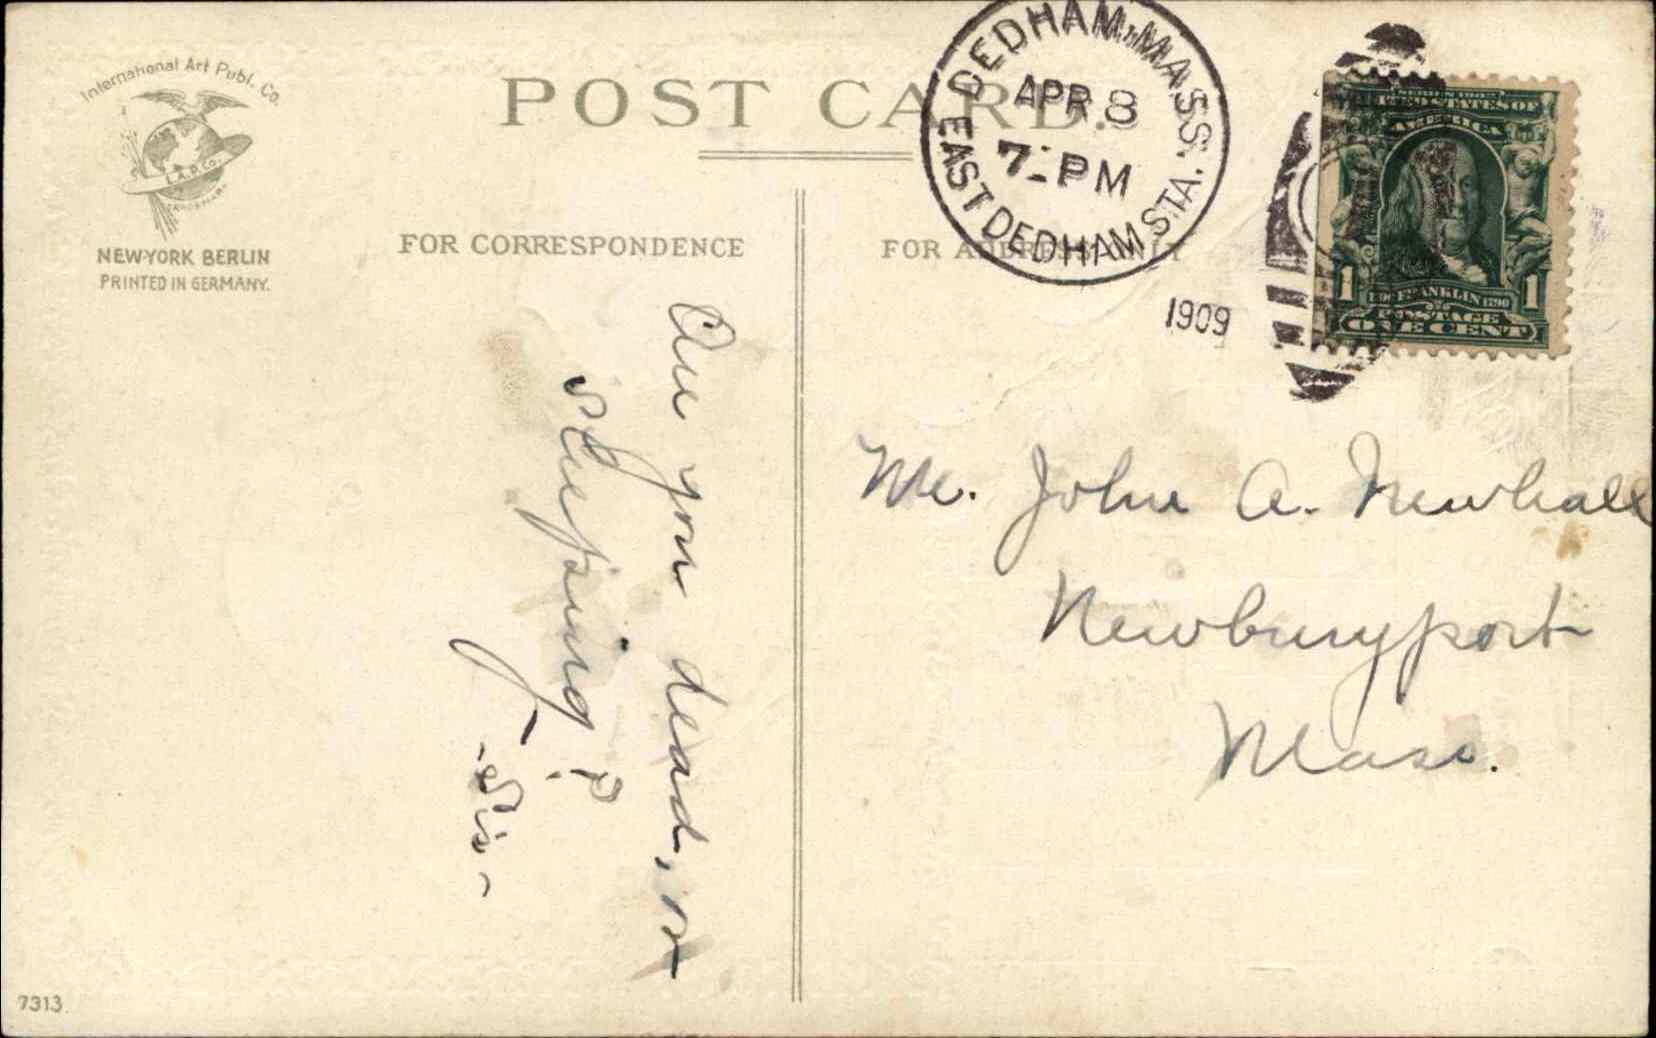 International Art Publ. Co.
I.A.P.Co.
NEW-YORK BERLIN
PRINTED IN GERMANY.
POST CARD.
FOR CORRESPONDENCE
FOR ADDRESS ONLY
DEDHAM, MASS.
APR 8
7 - PM
EAST DEDHAM STA.
1909
UNITED STATES OF
AMERICA
1 FRANKLIN 1790 1
POSTAGE
ONE CENT
Are you dead, or
sleeping?
- Sis -
Mr. John A. Newhall
Newburyport
Mass.
7313